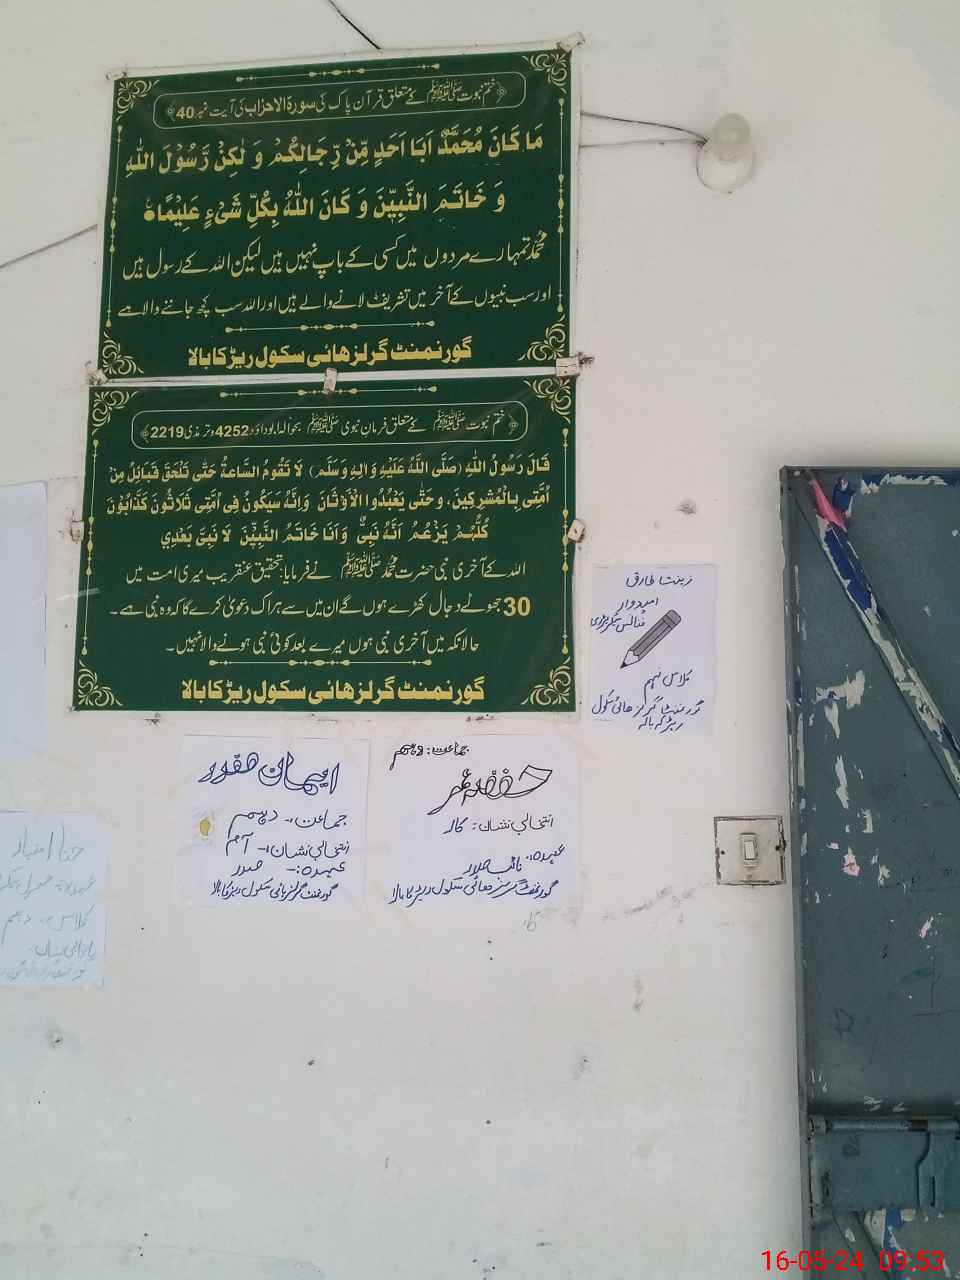 ختم نبوت ﷺ کے متعلق قرآن پاک کی سورۃ الاحزاب کی آیت نمبر 40
مَا كَانَ مُحَمَّدٌ اَبَا اَحَدٍ مِّنْ رِّجَالِكُمْ وَ لٰكِنْ رَّسُوْلَ اللّٰهِ
وَ خَاتَمَ النَّبِيّٖنَ وَ كَانَ اللّٰهُ بِكُلِّ شَیْءٍ عَلِيْمًا
محمدؐ تمہارے مردوں میں کسی کے باپ نہیں ہیں لیکن اللہ کے رسول ہیں
اور سب نبیوں کے آخر میں تشریف لانے والے ہیں اور اللہ سب کچھ جاننے والا ہے
گورنمنٹ گرلز ھائی سکول ریڑکابالا
ختم نبوت ﷺ کے متعلق فرمان نبوی ﷺ بحوالہ ابوداؤد 4252 و ترمذی 2219
قَالَ رَسُوْلُ اللّٰهِ (صَلَّی اللّٰهُ عَلَيْهِ وَاٰلِهٖ وَسَلَّمَ) لَا تَقُوْمُ السَّاعَةُ حَتّٰی تَلْحَقَ قَبَائِلُ مِنْ
اُمَّتِی بِالْمُشْرِكِيْنَ، وحَتّٰی يَعْبُدُوا الْاَوْثَانَ وَاِنَّهٗ سَيَكُوْنُ فِی اُمَّتِی ثَلَاثُوْنَ كَذَّابُوْنَ
كُلُّهُمْ يَزْعُمُ اَنَّهٗ نَبِیٌّ وَاَنَا خَاتَمُ النَّبِيّٖنَ لَا نَبِیَّ بَعْدِي
اللہ کے آخری نبی حضرت محمد ﷺ نے فرمایا: تحقیق عنقریب میری امت میں
30 جھوٹے دجال کھڑے ہوں گے ان میں سے ہر اک دعویٰ کرے گا کہ وہ نبی ہے۔
حالانکہ میں آخری نبی ہوں میرے بعد کوئی نبی ہونے والا نہیں۔
گورنمنٹ گرلز ھائی سکول ریڑکابالا
زینت طارق
امیدوار
فنانس سیکرٹری
کلاس نہم
گورنمنٹ گرلز ھائی سکول
ریڑکا بالا
جماعت: دہم
حفضہ عمر
انتخابی نشان: کار
عہدہ: نائب صدر
گورنمنٹ گرلز ھائی سکول ریڑکا بالا
ایمان غفور
جماعت:۔ دہم
انتخابی نشان:۔ آم
عہدہ:۔ صدر
گورنمنٹ گرلز ہائی سکول ریڑکا بالا
حنا امتیاز
کلاس: دہم
16-05-24 09:53